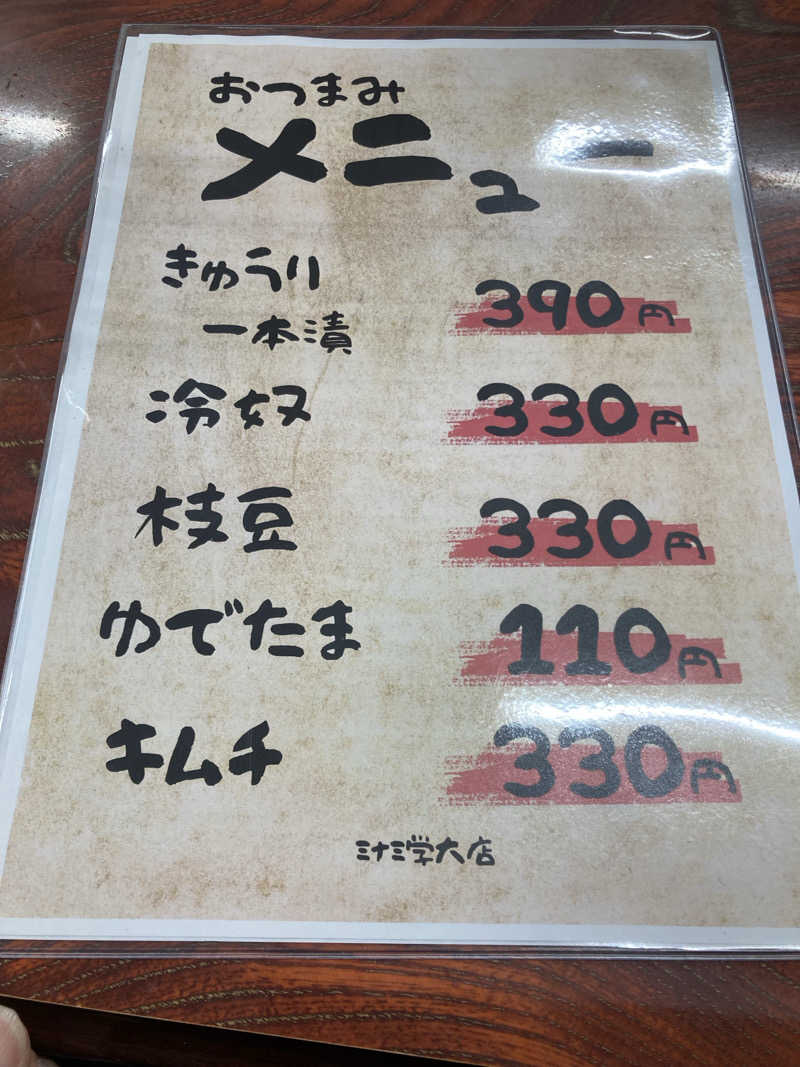 おつまみ
メニュー
きゅうり
一本漬 390円
冷奴 330円
枝豆 330円
ゆでたま 110円
キムチ 330円
ミナミ学大店